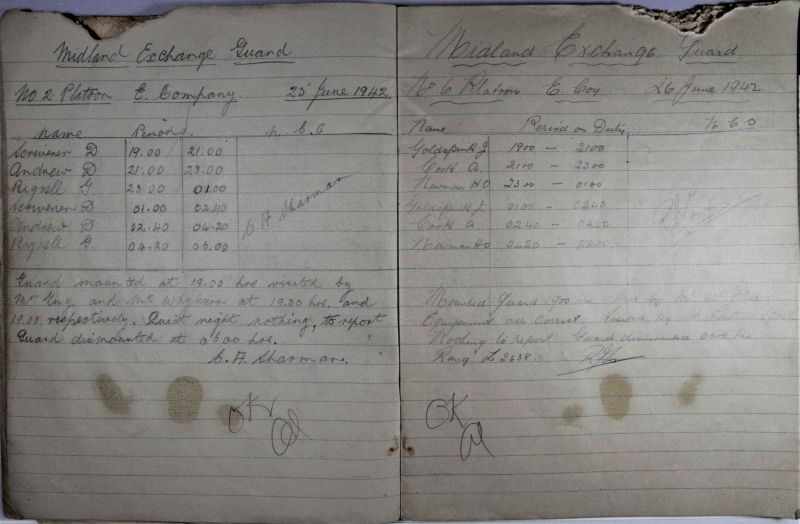 Midland Exchange Guard
No 2 Platoon E. Company. 25 June 1942
Name Period. N.C.O
Scrivener D 19.00 21.00
Andrew D 21.00 23.00
Rignell G 23.00 01.00
Scrivener D 01.00 02.40
Andrew D 02.40 04.20
Rignell G 04.20 06.00
C A Sharman
Guard mounted at 19.00 hrs visited by
Mr Guy and Mr at 19.30 hrs. and
19.00 respectively. Quiet night nothing, to report
Guard dismounted at 0600 hrs.
C. A. Sharman.
OK
Midland Exchange Guard
No 6 Platoon E. Coy 26 June 1942
Name Period on Duty N C O
J 1900 – 2100
Cooks A. 2100 – 2300
Newman H O 2300 – 0100
J. 0100 – 0240
Cooks A. 0240 – 0420
Newman H O 0420 – 0600
Mounted Guard 1900 by
Equipment all correct. Visited by
Nothing to report Guard dismounted 0600 hrs
Rang L 2638
OK